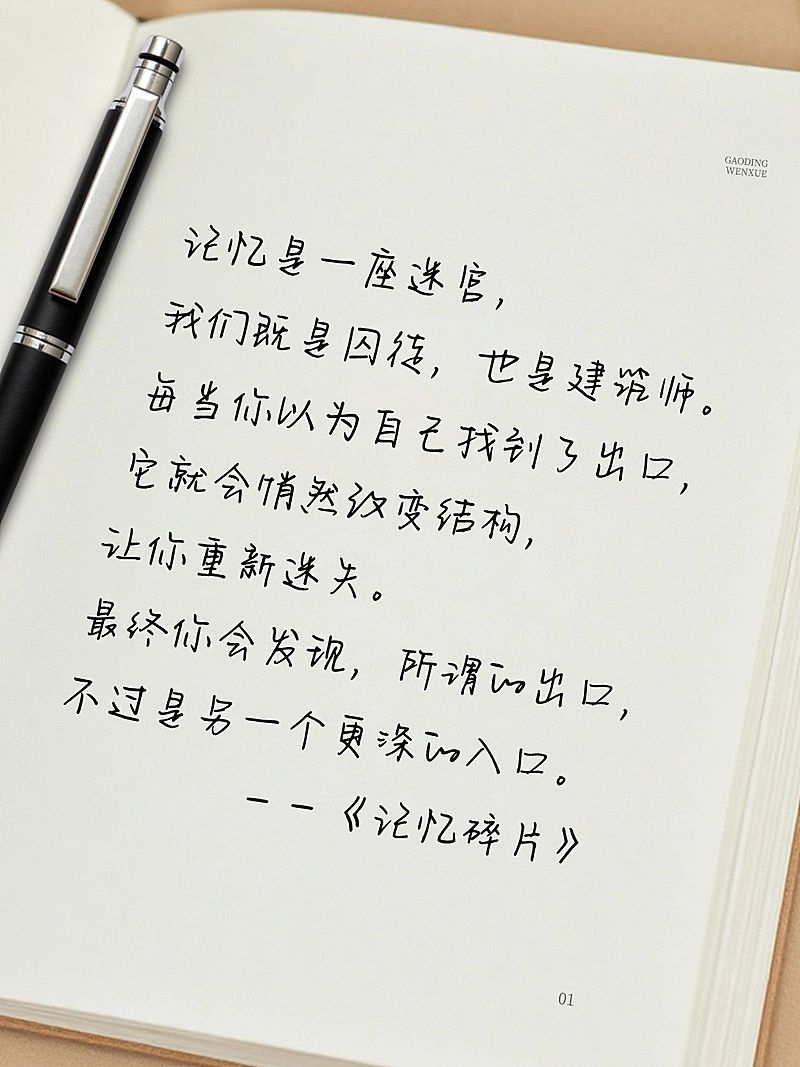 GAODING
WENXUE
记忆是一座迷宫，
我们既是囚徒，也是建筑师。
每当你以为自己找到了出口，
它就会悄然改变结构，
让你重新迷失。
最终你会发现，所谓的出口，
不过是另一个更深的入口。
——《记忆碎片》
01